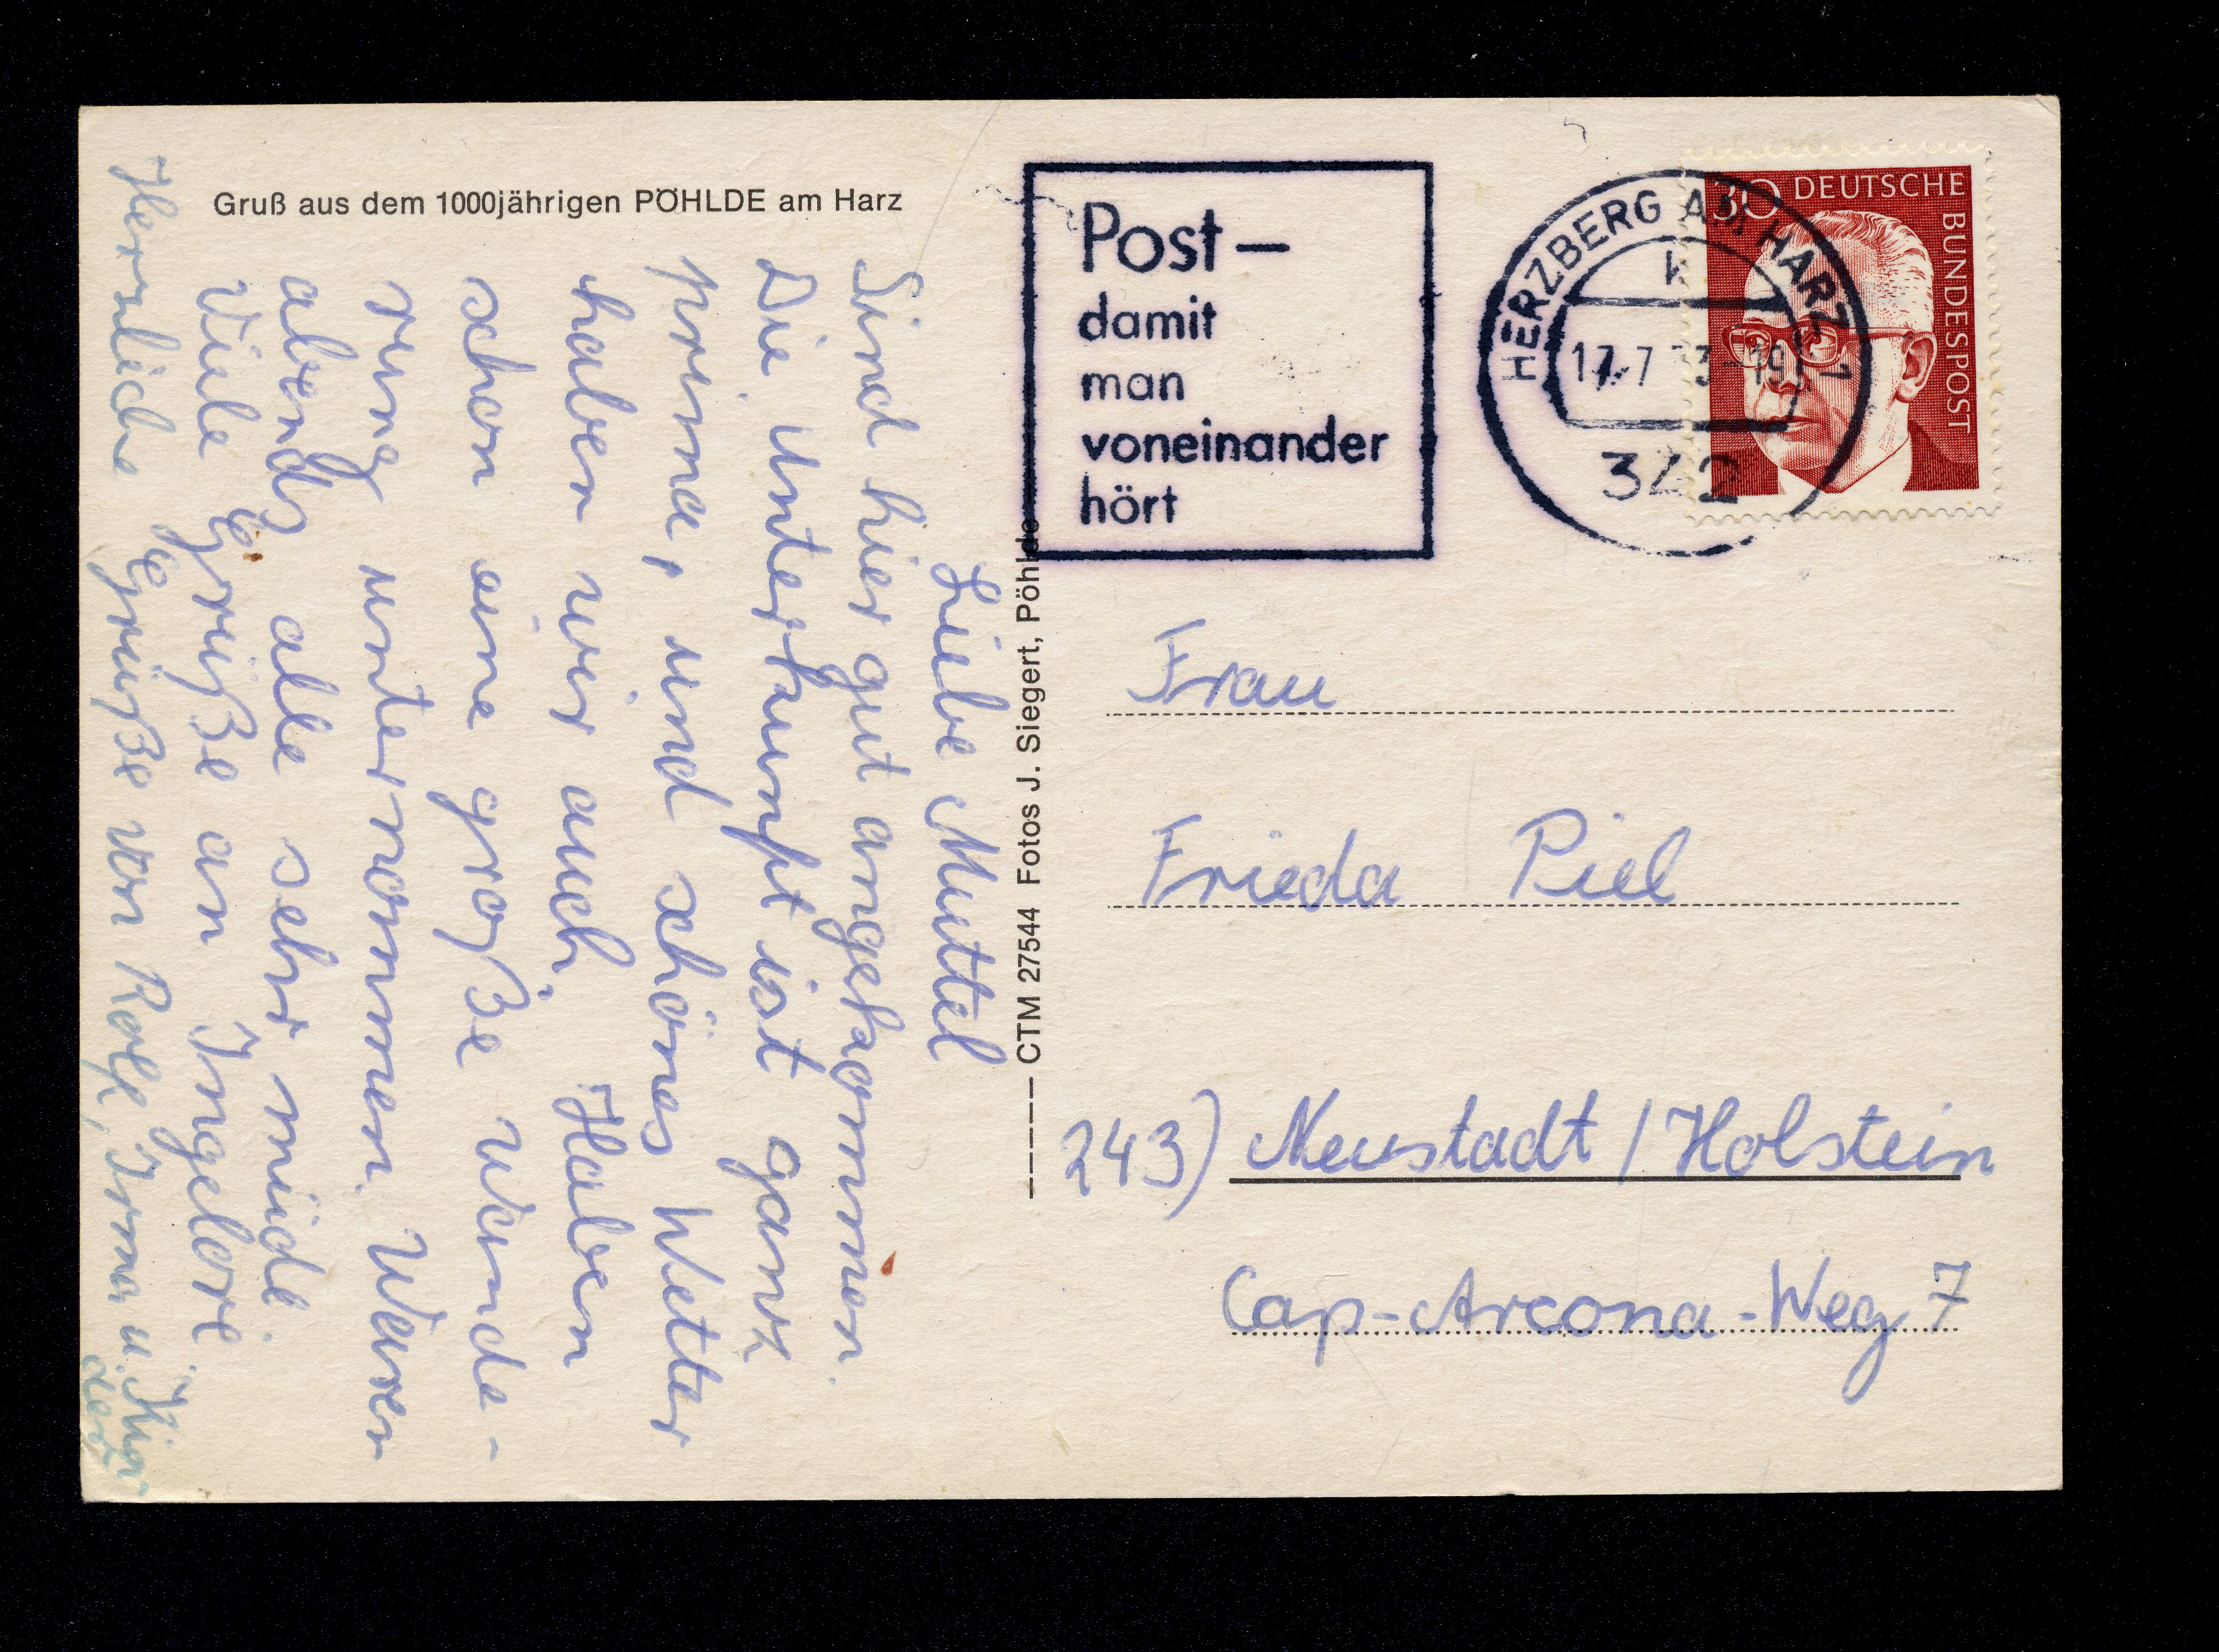 Gruß aus dem 1000jährigen PÖHLDE am Harz
Liebe Muttel
Sind hier gut angekommen.
Die Unterkunft ist ganz
prima, und schönes Wetter
haben wir auch. Haben
schon eine große Wande-
rung unternommen. Waren
abends alle sehr müde.
Viele Grüße an Ingelore
Herzliche Grüße von Rolf, Irma u.
CTM 27544 Fotos J. Siegert, Pöhlde
Post –
damit
man
voneinander
hört
HERZBERG AM HARZ 1
k
17.7 73-19
342
30 DEUTSCHE
BUNDESPOST
Frau
Frieda Piel
243) Neustadt / Holstein
Cap-Arcona-Weg 7